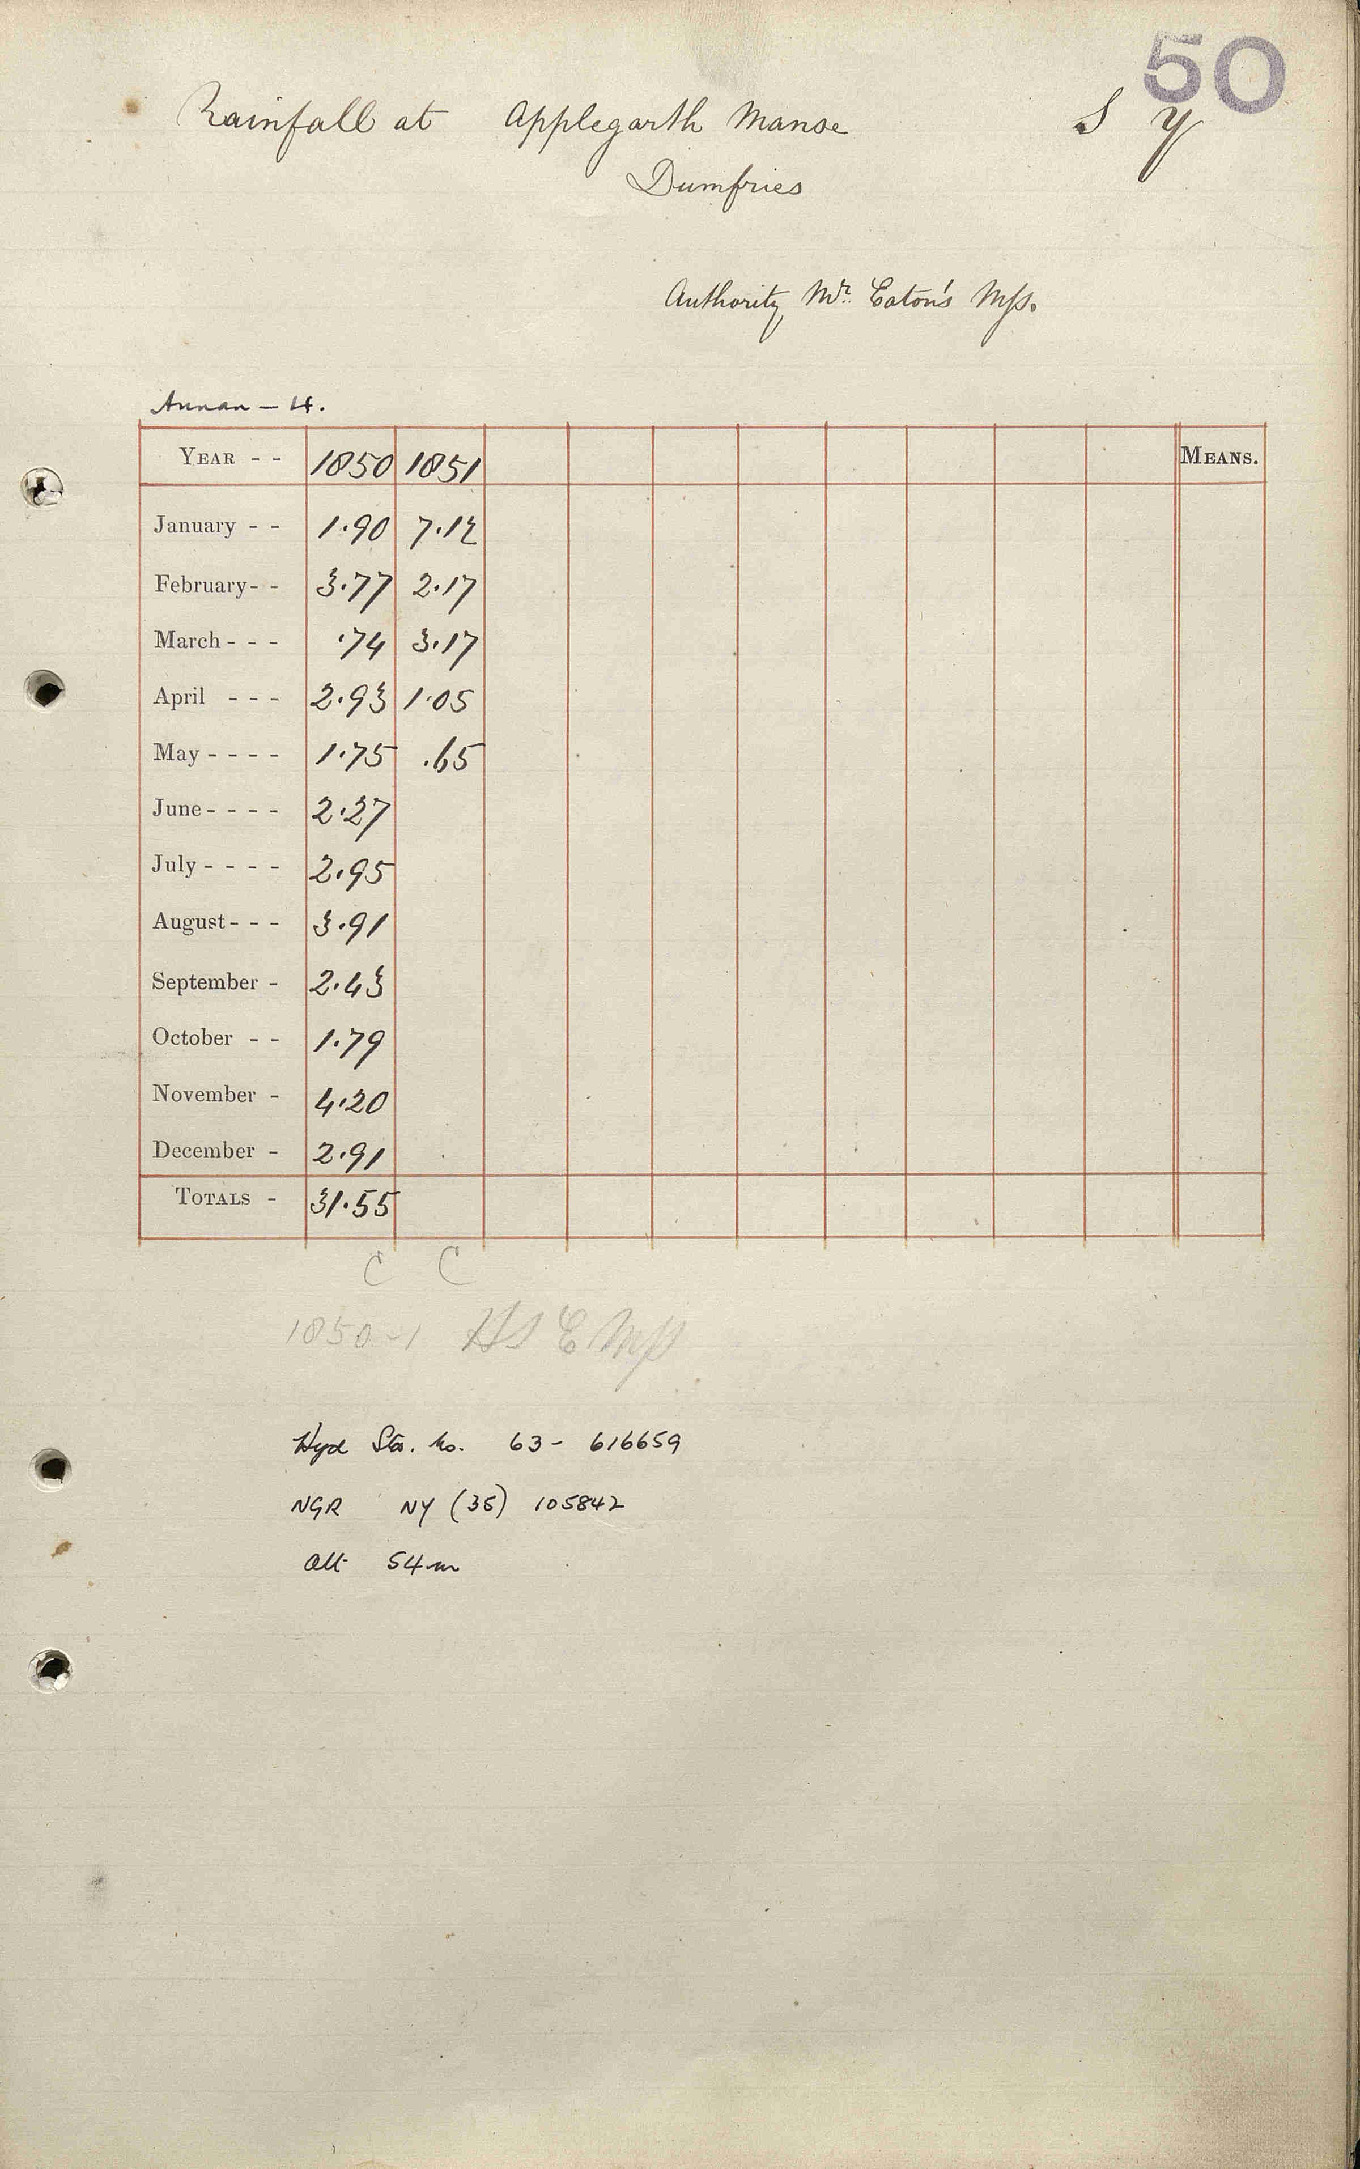 50
Rainfall at Applegarth Manse S y
Dumfries
Authority, Mr. Eaton's Mss.
Annan - 4.
YEAR - - 1850 1851 MEANS.
January - - 1.90 7.12
February - - 3.77 2.17
March - - - .74 3.17
April - - - 2.93 1.05
May - - - - 1.75 .65
June - - - - 2.27
July - - - - 2.95
August - - - 3.91
September - 2.43
October - - 1.79
November - 4.20
December - 2.91
TOTALS - 31.55
C C
1850-1 HS E Mss
Hyd Sta. No. 63 - 616659
NGR NY (35) 105842
Alt 54m